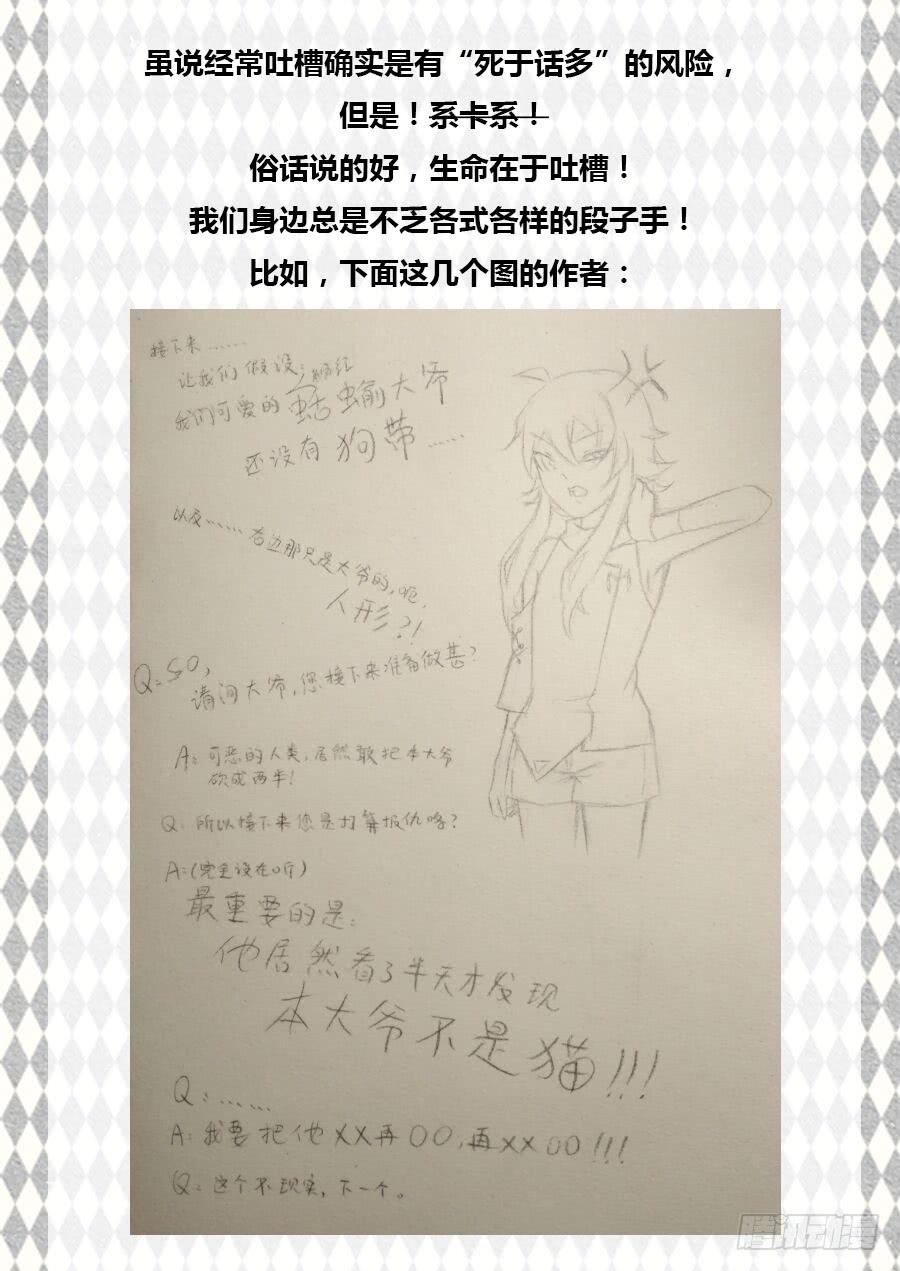 虽说经常吐槽确实是有“死于话多”的风险，
但是！系卡系！
俗话说的好，生命在于吐槽！
我们身边总是不乏各式各样的段子手！
比如，下面这几个图的作者：
接下来……
让我们假设：
我们可爱的蛞蝓大爷
还没有狗带……
以及……右边那只是大爷的，呃，
人形？！
Q：SO，
请问大爷，您接下来准备做甚？
A：可恶的人类，居然敢把本大爷
砍成两半！
Q：所以接下来您是打算报仇咯？
A：（完全没在听）
最重要的是：
他居然看了半天才发现
本大爷不是猫！！！
Q：……
A：我要把他XX再OO，再XXOO！！！
Q：这个不现实，下一个。
腾讯动漫